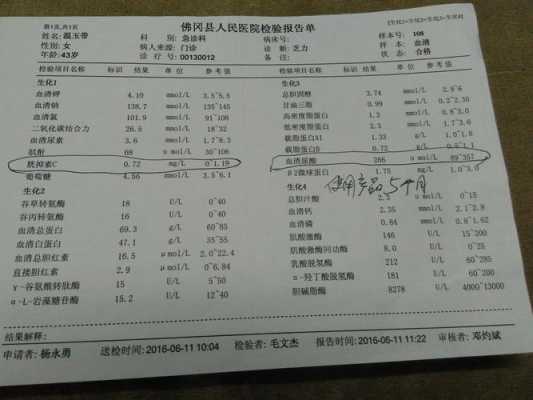 第1页,共1页 佛冈县人民医院检验报告单
姓名:温玉带 科 别:急诊科 病床号: 样本号:108
性别:女 病人来源:门诊 诊 断:乏力 样 本:血清
年龄:43岁 诊疗号:00130012 备 注: 状 态:合格
检验项目名称 标识 结果 单 位 参考值 检验项目名称 标识 结果 单 位 参考值
生化1 生化3
血清钾 4.10 mmol/L 3.5~5.5 总胆固醇 3.74 mmol/L
血清钠 138.7 mmol/L 135~145 甘油三酯 0.99 mmol/L
血清氯 101.9 mmol/L 高密度脂蛋白 1.3 mmol/L
二氧化碳结合力 26.5 mmol/L 18~32 低密度脂蛋白 2.3 mmol/L
血清尿素 3.6 mmol/L 1.7~8.3 载脂蛋白A1 1.33 g/L
肌酐 68 umol/L 载脂蛋白B 0.72 g/L
胱抑素C 0.72 mg/L 0~1.19 血清尿酸 286 umol/L 89~357
葡萄糖 4.56 mmol/L 3.5~6.1 β2微球蛋白 1.75 mg/L 1.0~3.0
使用产品5个月
生化2 生化4
谷草转氨酶 18 U/L 0~40 总胆汁酸 2.3 umol/L 0~15
谷丙转氨酶 16 U/L 0~40 血清钙 2.35 mmol/L 2.1~2.8
血清总蛋白 69.3 g/L 60~85 血清磷 0.84 mmol/L 0.8~1.62
血清白蛋白 47.1 g/L 35~55 肌酸激酶 146 U/L 15~200
血清总胆红素 16.5 umol/L 2.0~22.4 肌酸激酶同功酶 8.0 U/L 0~25
直接胆红素 2.9 umol/L 0~6.84 乳酸脱氢酶 212 U/L
γ-谷氨酸转肽酶 15 U/L 5~50 α-羟丁酸脱氢酶 181 U/L
α-L-岩藻糖苷酶 15.2 U/L 12~40 胆碱脂酶 8278 U/L 4000~13000
结果解释:
申请者:杨永勇 送检时间:2016-06-11 10:04 检验者:毛文杰 报告时间:2016-06-11 11:22 审核者:邓灼斌